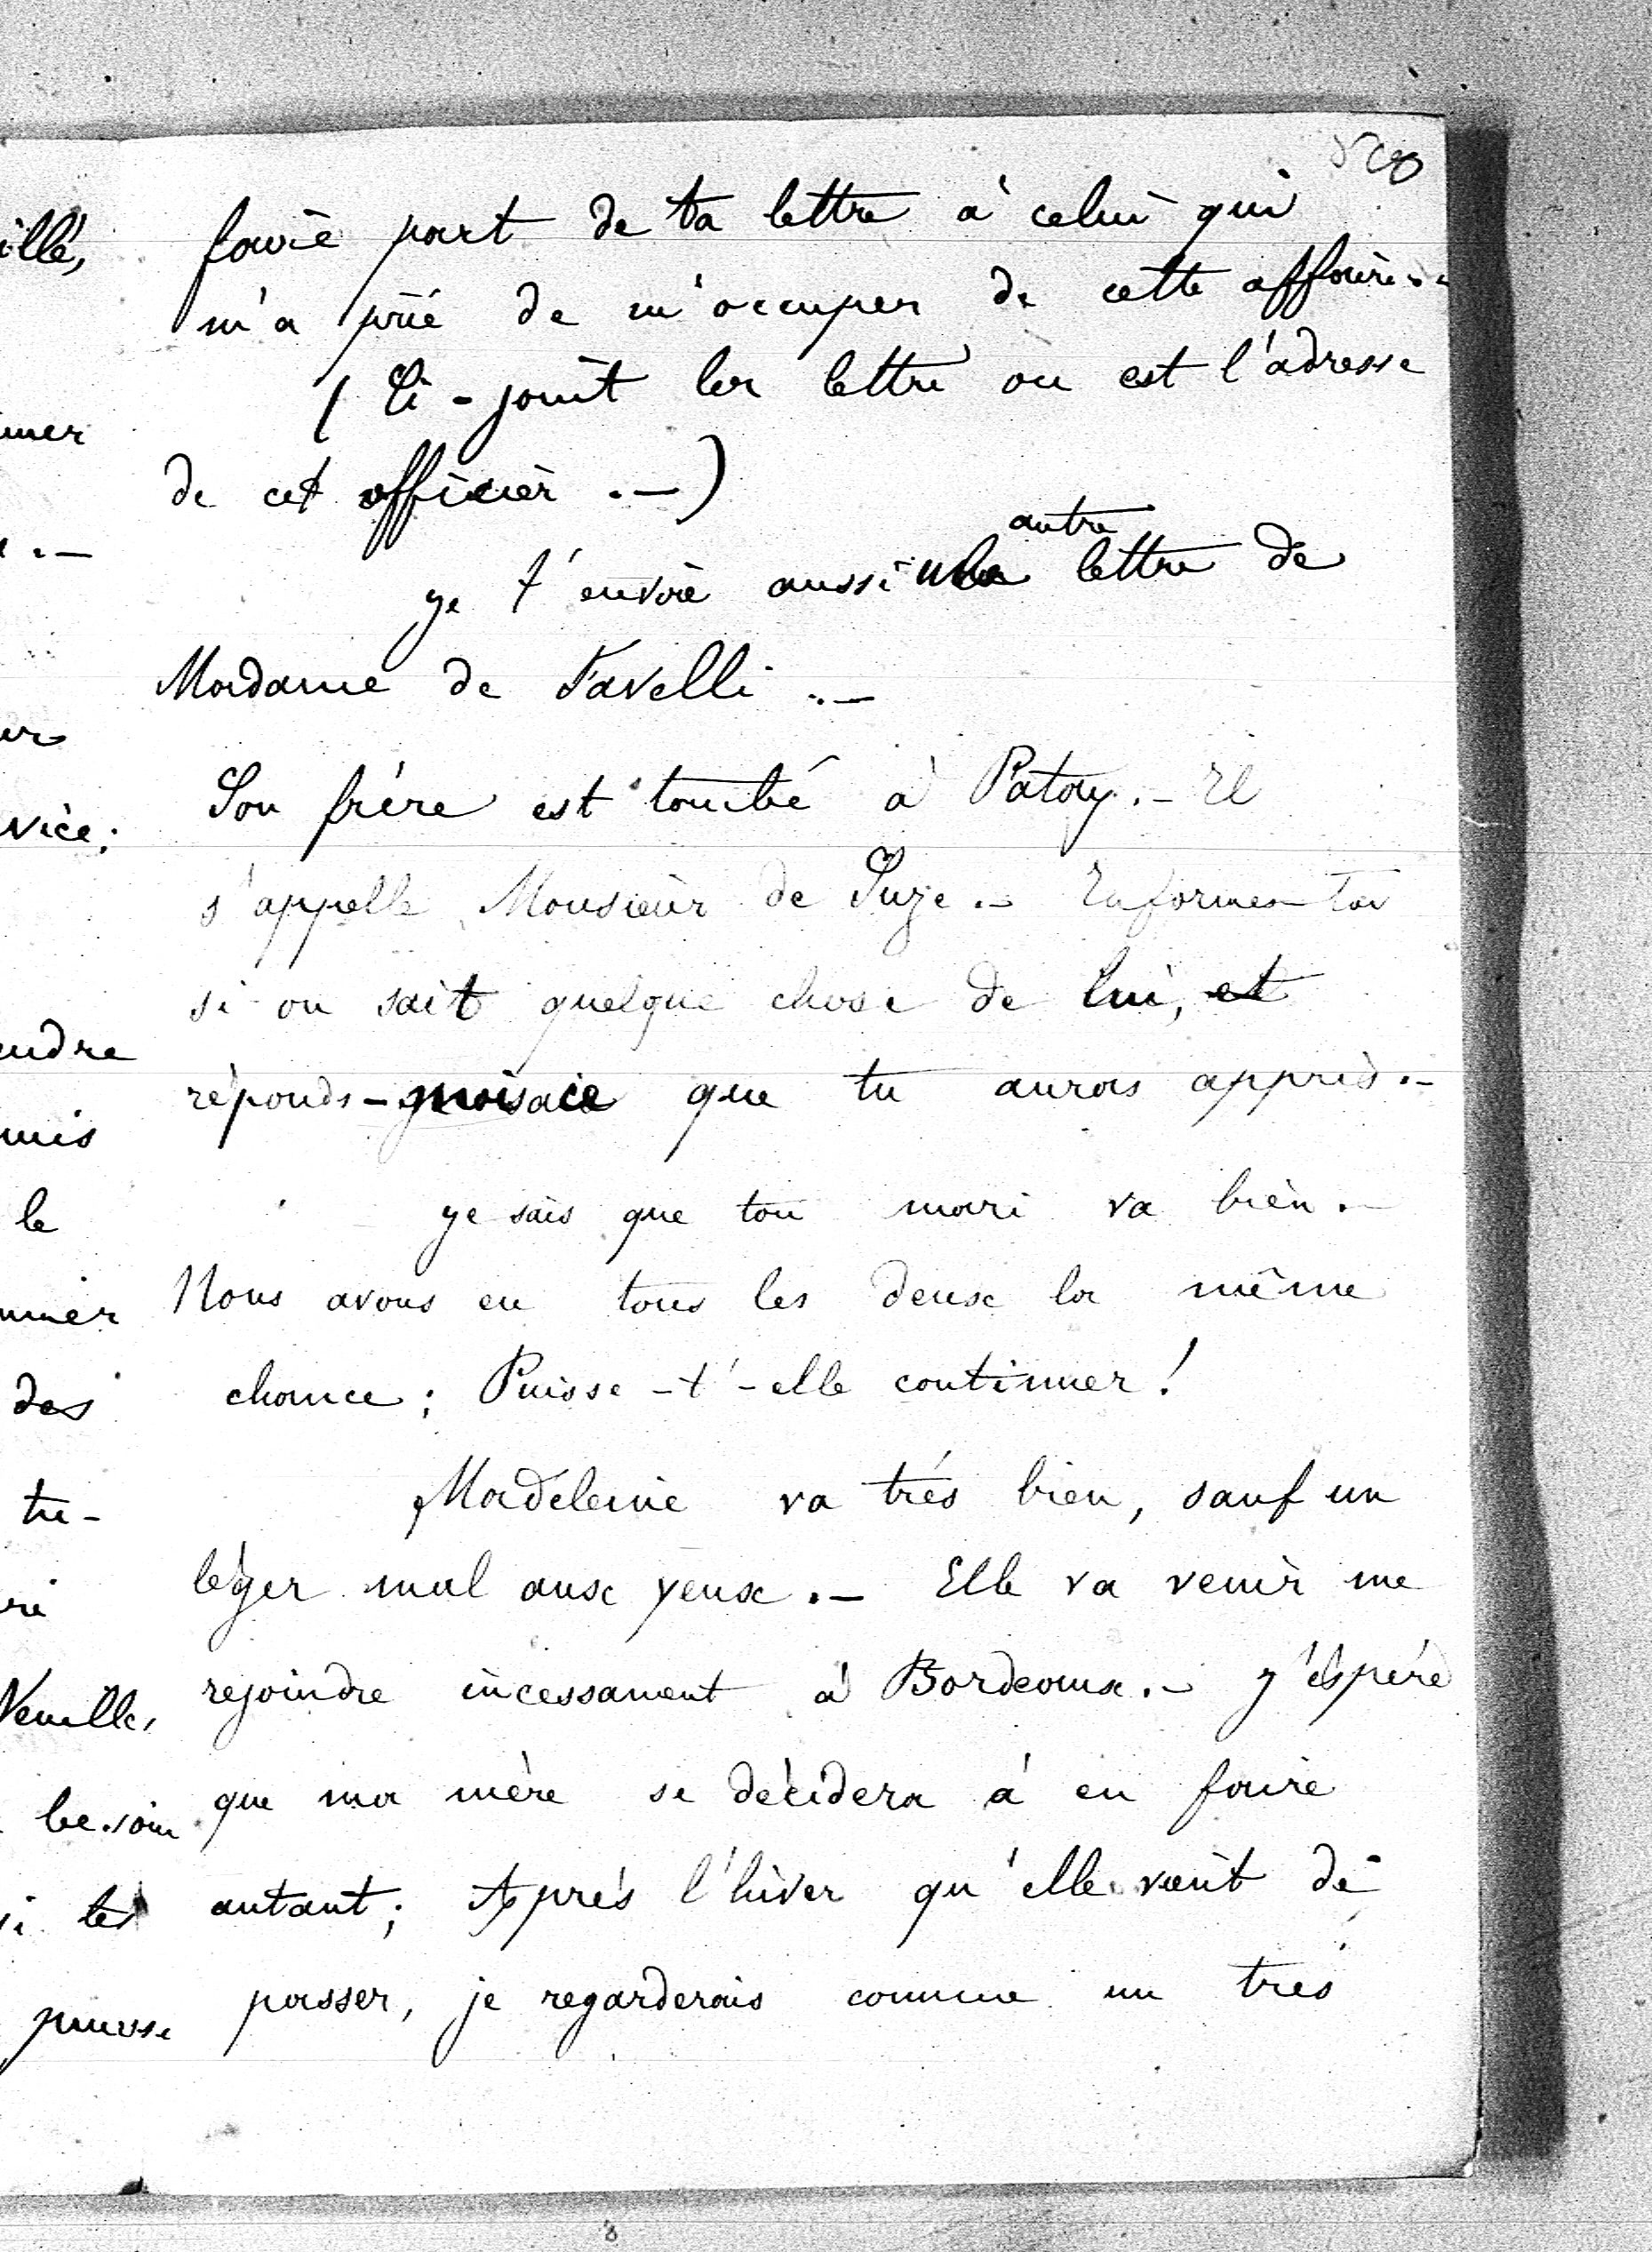 faire part de ta lettre à celui qui
m'a prié de m'occuper de cette affaire.-
( Ci-joint la lettre où est l'adresse
de cet officier .-)
Je t'envoie aussi une autre lettre de
Madame de Favelli .-
Son frère est tombé à Patay.- Il
s'appelle Monsieur de Suze.- Informes-toi
si on sait quelque chose de lui, et
réponds-moi ce que tu auras appris.-
Je sais que ton mari va bien.-
Nous avons eu tous les deux la même
chance; Puisse-t'-elle continuer!
Madeleine va très bien, sauf un
léger mal aux yeux.- Elle va venir me
rejoindre incessament à Bordeaux.- J'éspère
que ma mère se décidera à en faire
autant; Après l'hiver qu'elle vient de
passer, je regarderais comme un très
illé,
vice;
endre
mis
le
des
tu-
besoin
les
puisse